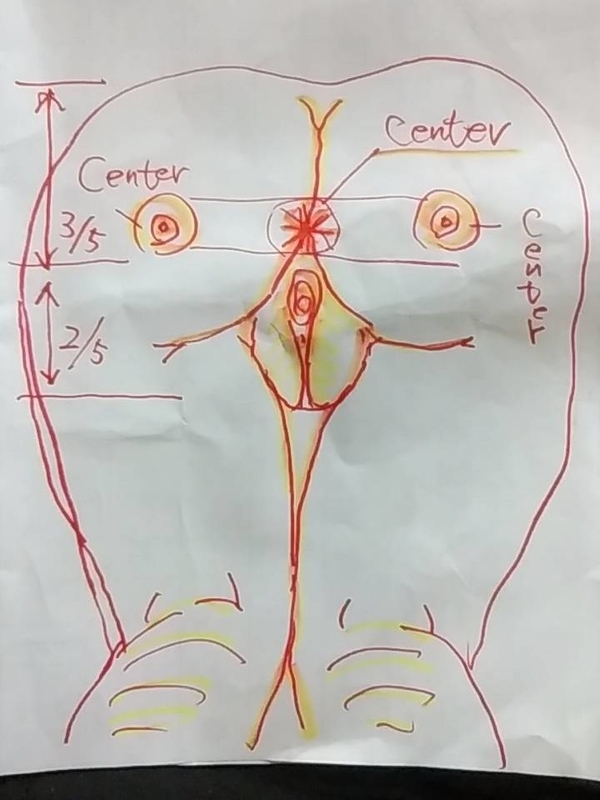 Center
Center
3/5
Center
2/5